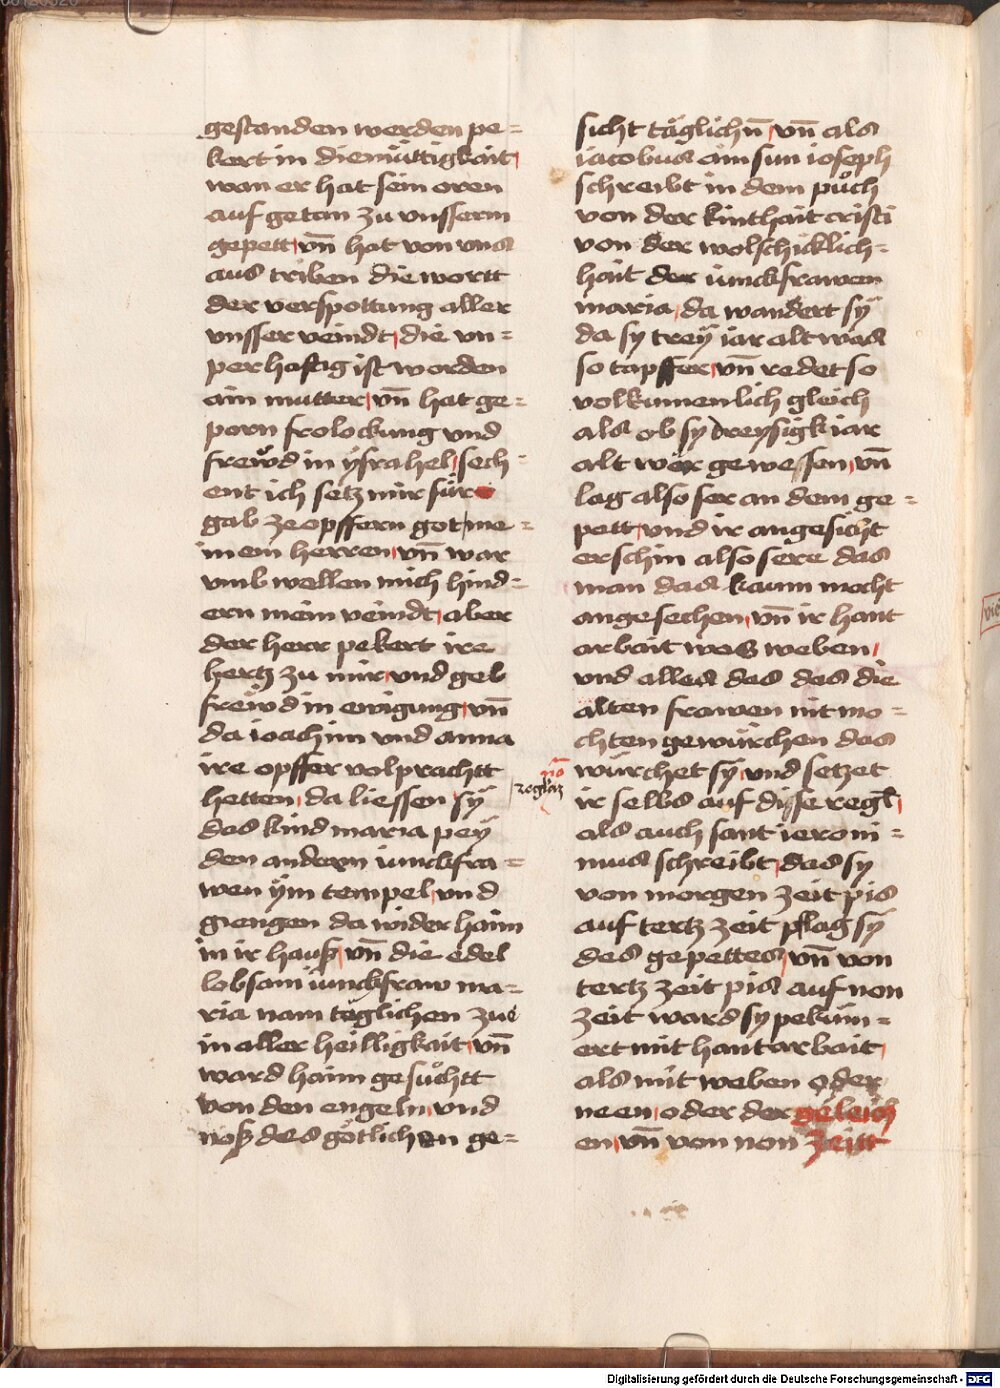 gestanden werden pe=
kert in diemüttigkait
wan er hat sein oren
auf getan zu vnsserm
gepett vn̄ hat von vns
aus triben die wortt
der verspottung aller
vnsser veindt die vn=
perhaftig ist worden
ain mutter vn̄ hat ge=
porn frolockung vnd
frewd in ysrahel sech=
ent ich setz mir für
gab ze opffern got me=
inem herren vn̄ war
vmb wellen mich hind=
ern mein veindt aber
der herr pekert ire
hertz zu mir vnd geb
frewd in ewigung vn̄
da ioachim vnd anna
ire opffer volprachtt
hetten da liessen sÿ
das kind maria peÿ
den andern iunckfra=
wen ÿm tempel vnd
giengen da wider haim
in ir hauß vn̄ die edel
lobsam iunckfraw ma=
ria nam täglichen zue
in aller heilligkait vn̄
ward haim gesuͦchtt
von den engeln vnd
noß des götlichen ge=
sicht täglichn̄ vn̄ als
iacobus aim sun ioseph
schreibt in dem puͦch
von der kinthait cristi
von der wolschicklich=
hait der iunckfrawen
maria da wandert sÿ
da sy treÿ iar alt was
so tapffer vn̄ redet so
volkumenlich gleich
als ob sy dreysigk iar
alt wer gewessen vn̄
lag also ser an dem ge=
pett vnd ir angesicht
erschin also sere das
man das kaum mocht
angesechen vn̄ ir hant
arbait was weben
vnd alles das das die
alten frawen nit mo=
chten gewürchen das
würchet sÿ vnd setzet
ir selbs auf disse regl̄
als auch sant ieroni=
mus schreibt das sy
von morgen zeit pis
auf tertz zeit pflag sÿ
des gepettes vn̄ von
tertz zeit pis auf non
zeit ward sy peküm=
ert mit hantarbait
als mit weben oder
neen oder der geleich
en vn̄ von non zeitt
no̅
DFG
Digitalisierung gefördert durch die Deutsche Forschungsgemeinschaft -